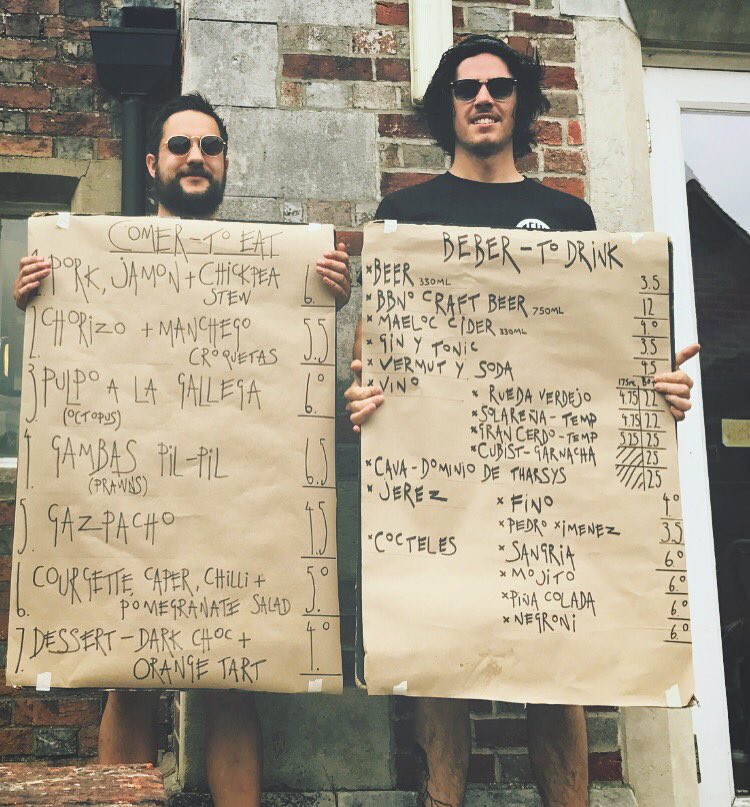 COMER-TO EAT
1. PORK, JAMON + CHICKPEA 6.
STEW
2. CHORIZO + MANCHEGO 5.5
CROQUETAS
3. PULPO A LA GALLEGA 6.0
(OCTOPUS)
4. GAMBAS PIL-PIL 6.5
(PRAWNS)
5. GAZPACHO 4.5
6. COURGETTE, CAPER, CHILLI + 5.0
POMEGRANATE SALAD
7. DESSERT - DARK CHOC + 4.0
ORANGE TART
BEBER - TO DRINK
* BEER 330ML 3.5
* BBNO CRAFT BEER 750ML 12
* MAELOC CIDER 330ML 4.0
* GIN Y TONIC 3.5
* VERMUT Y SODA 4.5
* VINO
* RUEDA VERDEJO 4.75 22
* SOLAREÑA - TEMP 4.75 22
* GRAN CERDO - TEMP 5.25 25
* CUBIST - GARNACHA 25
* CAVA - DOMINIO DE THARSYS 25
* JEREZ * FINO 4.0
* PEDRO XIMENEZ 3.5
* COCTELES * SANGRIA 6.0
* MOJITO 6.0
* PIÑA COLADA 6.0
* NEGRONI 6.0